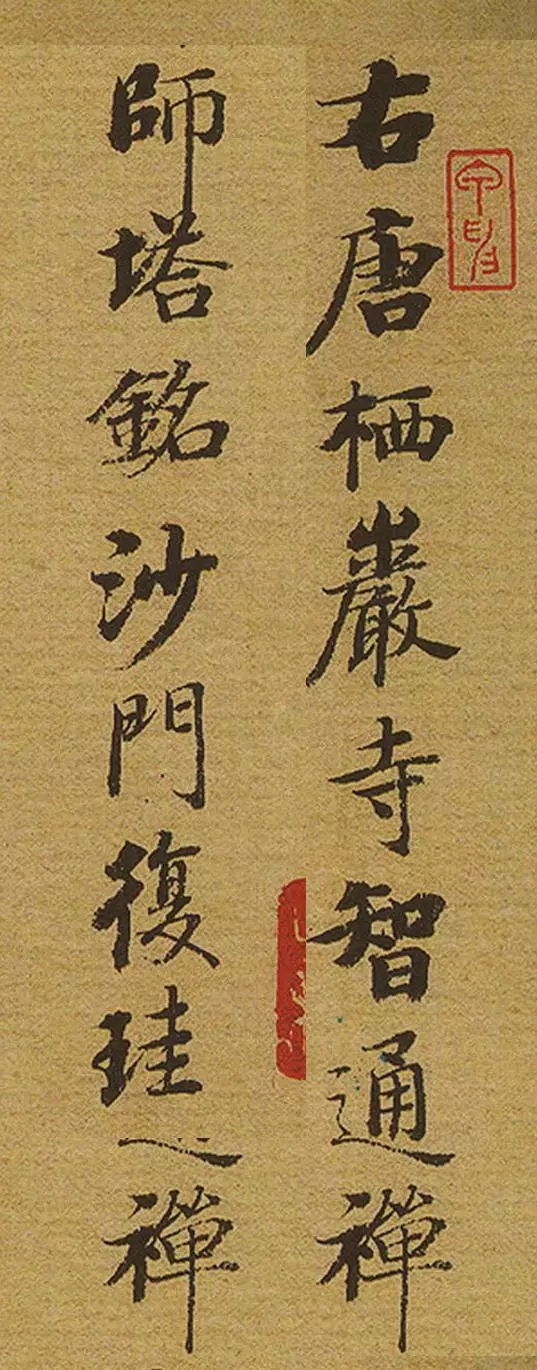 右唐栖巖寺智通禪
師塔銘沙門復珪
禪